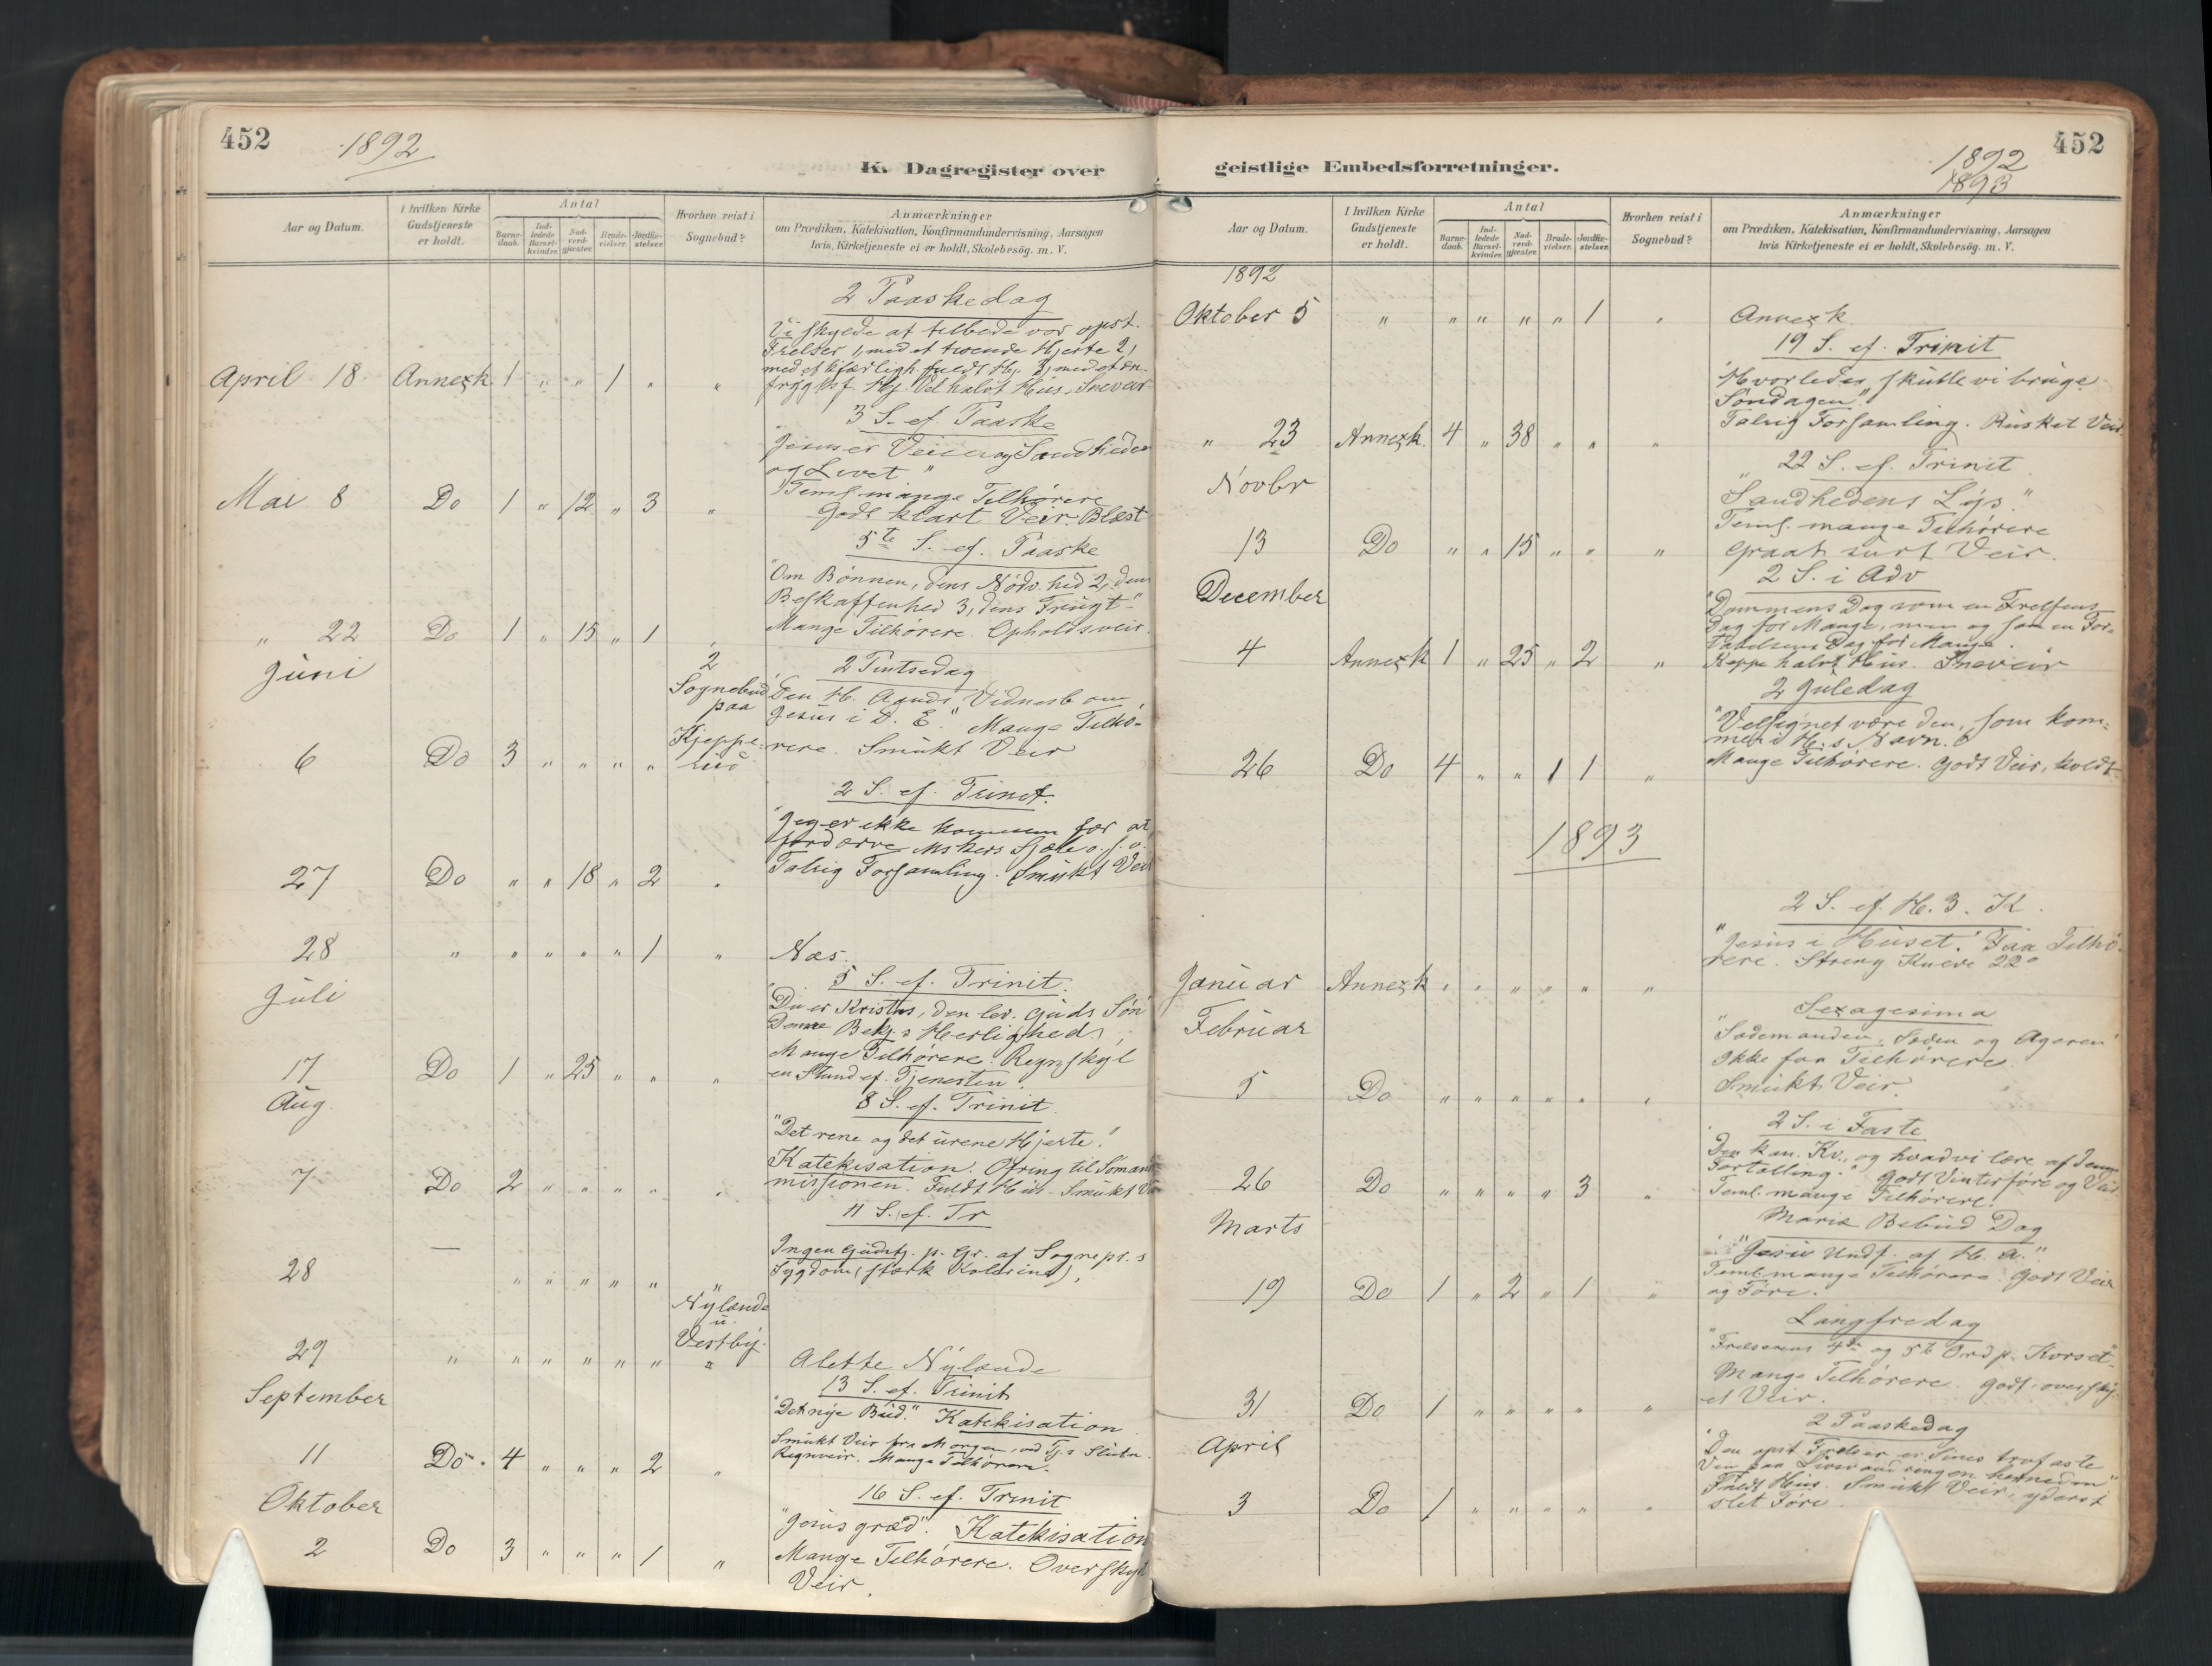 452
1892
K. Dagregister over
Aar og Datum.
I hvilken Kirke
Gudstjeneste
er holdt.
Antal
Barne-
daab.
Ind-
ledede
Barsel-
kvinder.
Nad-
verd-
gjester.
Brude-
vielser.
Jordfæ-
stelser.
Hvorhen reist i
Sognebud?
Anmærkninger
om Prædiken, Katekisation, Konfirmandundervisning, Aarsagen
hvis Kirketjeneste ei er holdt, Skolebesög. m. V.
2 Paaskedag
Vi skylde at tilbede vor opst.
Frelser 1, med et troende Hjerte 2,
April 18. Annexk. 1 " " 1 " "
Hj. Vel halvt Hus. Sneveir
3 S. ef. Paaske
"Jesus er Veien og Sandheden
og Livet"
Mai 8 Do 1 " 12 " 3 "
Teml. mange Tilhørere
Godt klart Veir. Blæst
5te S. ef. Paaske
"Om Bønnen, dens Nødv.hed 2, dens
Beskaffenhed 3, dens Frugt."
" 22 Do 1 " 15 " 1 "
Mange Tilhørere. Opholdsveir.
Juni
2
Sognebud
paa
2 Pintsedag
Den H. Aands Vidnesb. om
Jesus i D. E." Mange Tilhø-
6 Do 3 " " " "
rere. Smukt Veir
2 S. ef. Trinit.
"Jeg er ikke kommen for at
fordærve Mskers Sjæle o.s.v.
27 Do " " 18 " 2 "
Talrig Forsamling. Smukt Veir
28 " " " " " 1 " Næs.
Juli
5 S. ef. Trinit.
"Du er Kristus, den lev. Guds Søn
Denne Bekj.s Herlighed;
17 Do 1 " 25 " " "
Mange Tilhørere. Regnskyl
en Stund ef. Tjenesten.
Aug.
8 S. ef. Trinit.
"Det rene og det urene Hjerte."
7 Do 2 " " " " "
Katekisation. Ofring til Sømands
missionen. Fuldt Hus. Smukt Veir
11 S. ef. Tr
28 — " " " " " "
Ingen Gudstj. p. Gr. af Sognepr.s
Sygdom (stærk Kolerine).
Nylænde
u.
Vestby.
29 " " " " " " "
Alette Nylænde
September
13 S. ef. Trinit
"Det nye Bud." Katekisation
Smukt Veir fra Morgen, ved Tj.s Slutn.
11 Do. 4 " " " 2 "
Regnveir. Mange Tilhørere.
Oktober
16 S. ef. Trinit
"Jesus græd". Katekisation
2 Do 3 " " " 1 "
Mange Tilhørere. Overskyt
Veir.
452
1892
1893
geistlige Embedsforretninger.
Aar og Datum.
I hvilken Kirke
Gudstjeneste
er holdt.
Antal
Barne-
daab.
Ind-
ledede
Barsel-
kvinder.
Nad-
verd-
gjester.
Brude-
vielser.
Jordfæ-
stelser.
Hvorhen reist i
Sognebud?
Anmærkninger
om Prædiken, Katekisation, Konfirmandundervisning, Aarsagen
hvis Kirketjeneste ei er holdt, Skolebesög. m. V.
1892
Oktober 5 " " " " " 1 " Annexk.
19 S. ef. Trinit
"Hvorledes skulle vi bruge
Søndagen."
" 23 Annexk. 4 " 38 " " "
Talrig Forsamling. Rusket Veir.
Novbr
22 S. ef. Trinit.
"Sandhedens Lys."
Teml. mange Tilhørere
13 Do " " 15 " " "
Graat surt Veir.
December
2 S. i Adv
"Dommens Dag som en Frelsens
Dag for Mange, men og som en For-
tabelsens Dag for Mange.
4 Annexk 1 " 25 " 2 "
Neppe halvt Hus. Sneveir
2 Juledag
"Velsignet være den, som kom-
mer i H.s Navn."
26 Do 4 " " 1 1 "
Mange Tilhørere. Godt Veir, koldt.
1893
2 S. ef. H. 3. K.
"Jesus i Huset." Faa Tilhø-
rere. Streng Kulde 22°
Januar Annexk " " " " " "
Februar
Sexagesima
"Sædemanden, Sæden og Ageren"
Ikke faa Tilhørere
5 Do " " " " " "
Smukt Veir.
2 S. i Faste
Den kan. Kv. og hvad vi lære af denne
Fortælling." Godt Vinterføre og Veir
26 Do " " " " 3 "
Teml. mange Tilhørere.
Marts
Mariæ Bebud Dag
"Jesu Undf. af H. A."
Teml. mange Tilhørere. Godt Veir
19 Do 1 " 2 " 1 "
og Føre.
Langfredag
"Frelserens 4de og 5te Ord p. Korset".
Mange Tilhørere. Godt, oversky-
31 Do 1 " " " " "
et Veir.
April
2 Paaskedag
"Den opst. Frelser er Sines trofaste
Ven paa hernede"
Fuldt Hus. Smukt Veir, yderst
3 Do 1 " " " " "
slet Føre